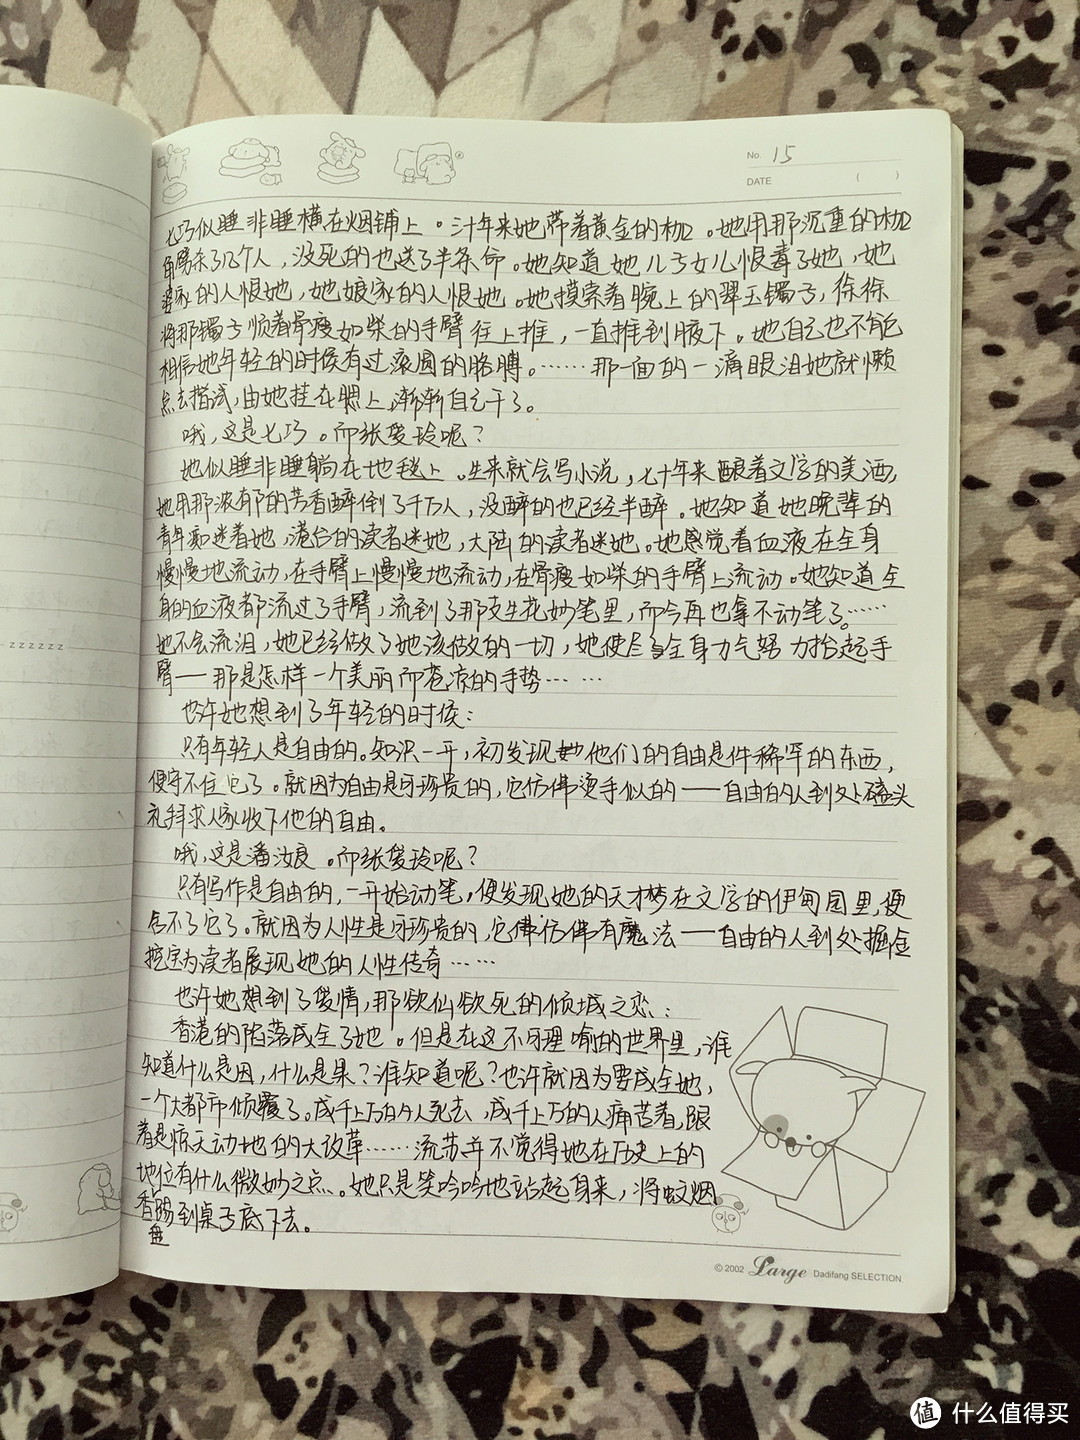 No. 15
DATE ( )
七巧似睡非睡横在烟铺上。三十年来她带着黄金的枷。她用那沉重的枷
角劈杀了几个人，没死的也送了半条命。她知道她儿子女儿恨毒了她，她
婆家的人恨她，她娘家的人恨她。她摸索着腕上的翠玉镯子，徐徐
将那镯子顺着骨瘦如柴的手臂往上推，一直推到腋下。她自己也不能
相信她年轻的时候有过滚圆的胳膊。……那一面的一滴眼泪她就懒
怠去揩拭，由她挂在腮上，渐渐自己干了。
哦，这是七巧。而张爱玲呢？
她似睡非睡躺在地毯上。生来就会写小说，七十年来酿着文学的美酒，
她用那浓郁的芳香醉倒了千万人，没醉的也已经半醉。她知道她晚辈的
青年迷着她，港台的读者迷她，大陆的读者迷她。她感觉着血液在全身
慢慢地流动，在手臂上慢慢地流动，在骨瘦如柴的手臂上流动。她知道全
身的血液都流过了手臂，流到了那支生花妙笔里，而今再也拿不动笔了……
她不会流泪，她已经做了她该做的一切，她使尽全身力气努力抬起手
臂——那是怎样一个美丽而苍凉的手势……
也许她想到了年轻的时候：
只有年轻人是自由的。知识一开，初发现他们的自由是件稀罕的东西，
便守不住它了。就因为自由是可珍贵的，它仿佛烫手似的——自由的人到处磕头
礼拜求人家收下他的自由。
哦，这是潘汝良。而张爱玲呢？
只有写作是自由的，一开始动笔，便发现她的天才梦在文学的伊甸园里，便
舍不了它了。就因为人性是可珍贵的，它仿佛有魔法——自由的人到处掘金
挖宝为读者展现她的人性传奇……
也许她想到了爱情，那欲仙欲死的倾城之恋：
香港的陷落成全了她。但是在这不可理喻的世界里，谁
知道什么是因，什么是果？谁知道呢？也许就因为要成全她，
一个大都市倾覆了。成千上万的人死去，成千上万的人痛苦着，跟
着是惊天动地的大改革……流苏并不觉得她在历史上的
地位有什么微妙之点。她只是笑吟吟地站起身来，将蚊烟
香盘踢到桌子底下去。
zzzzzz
© 2002 Large Dadifang SELECTION
值 什么值得买